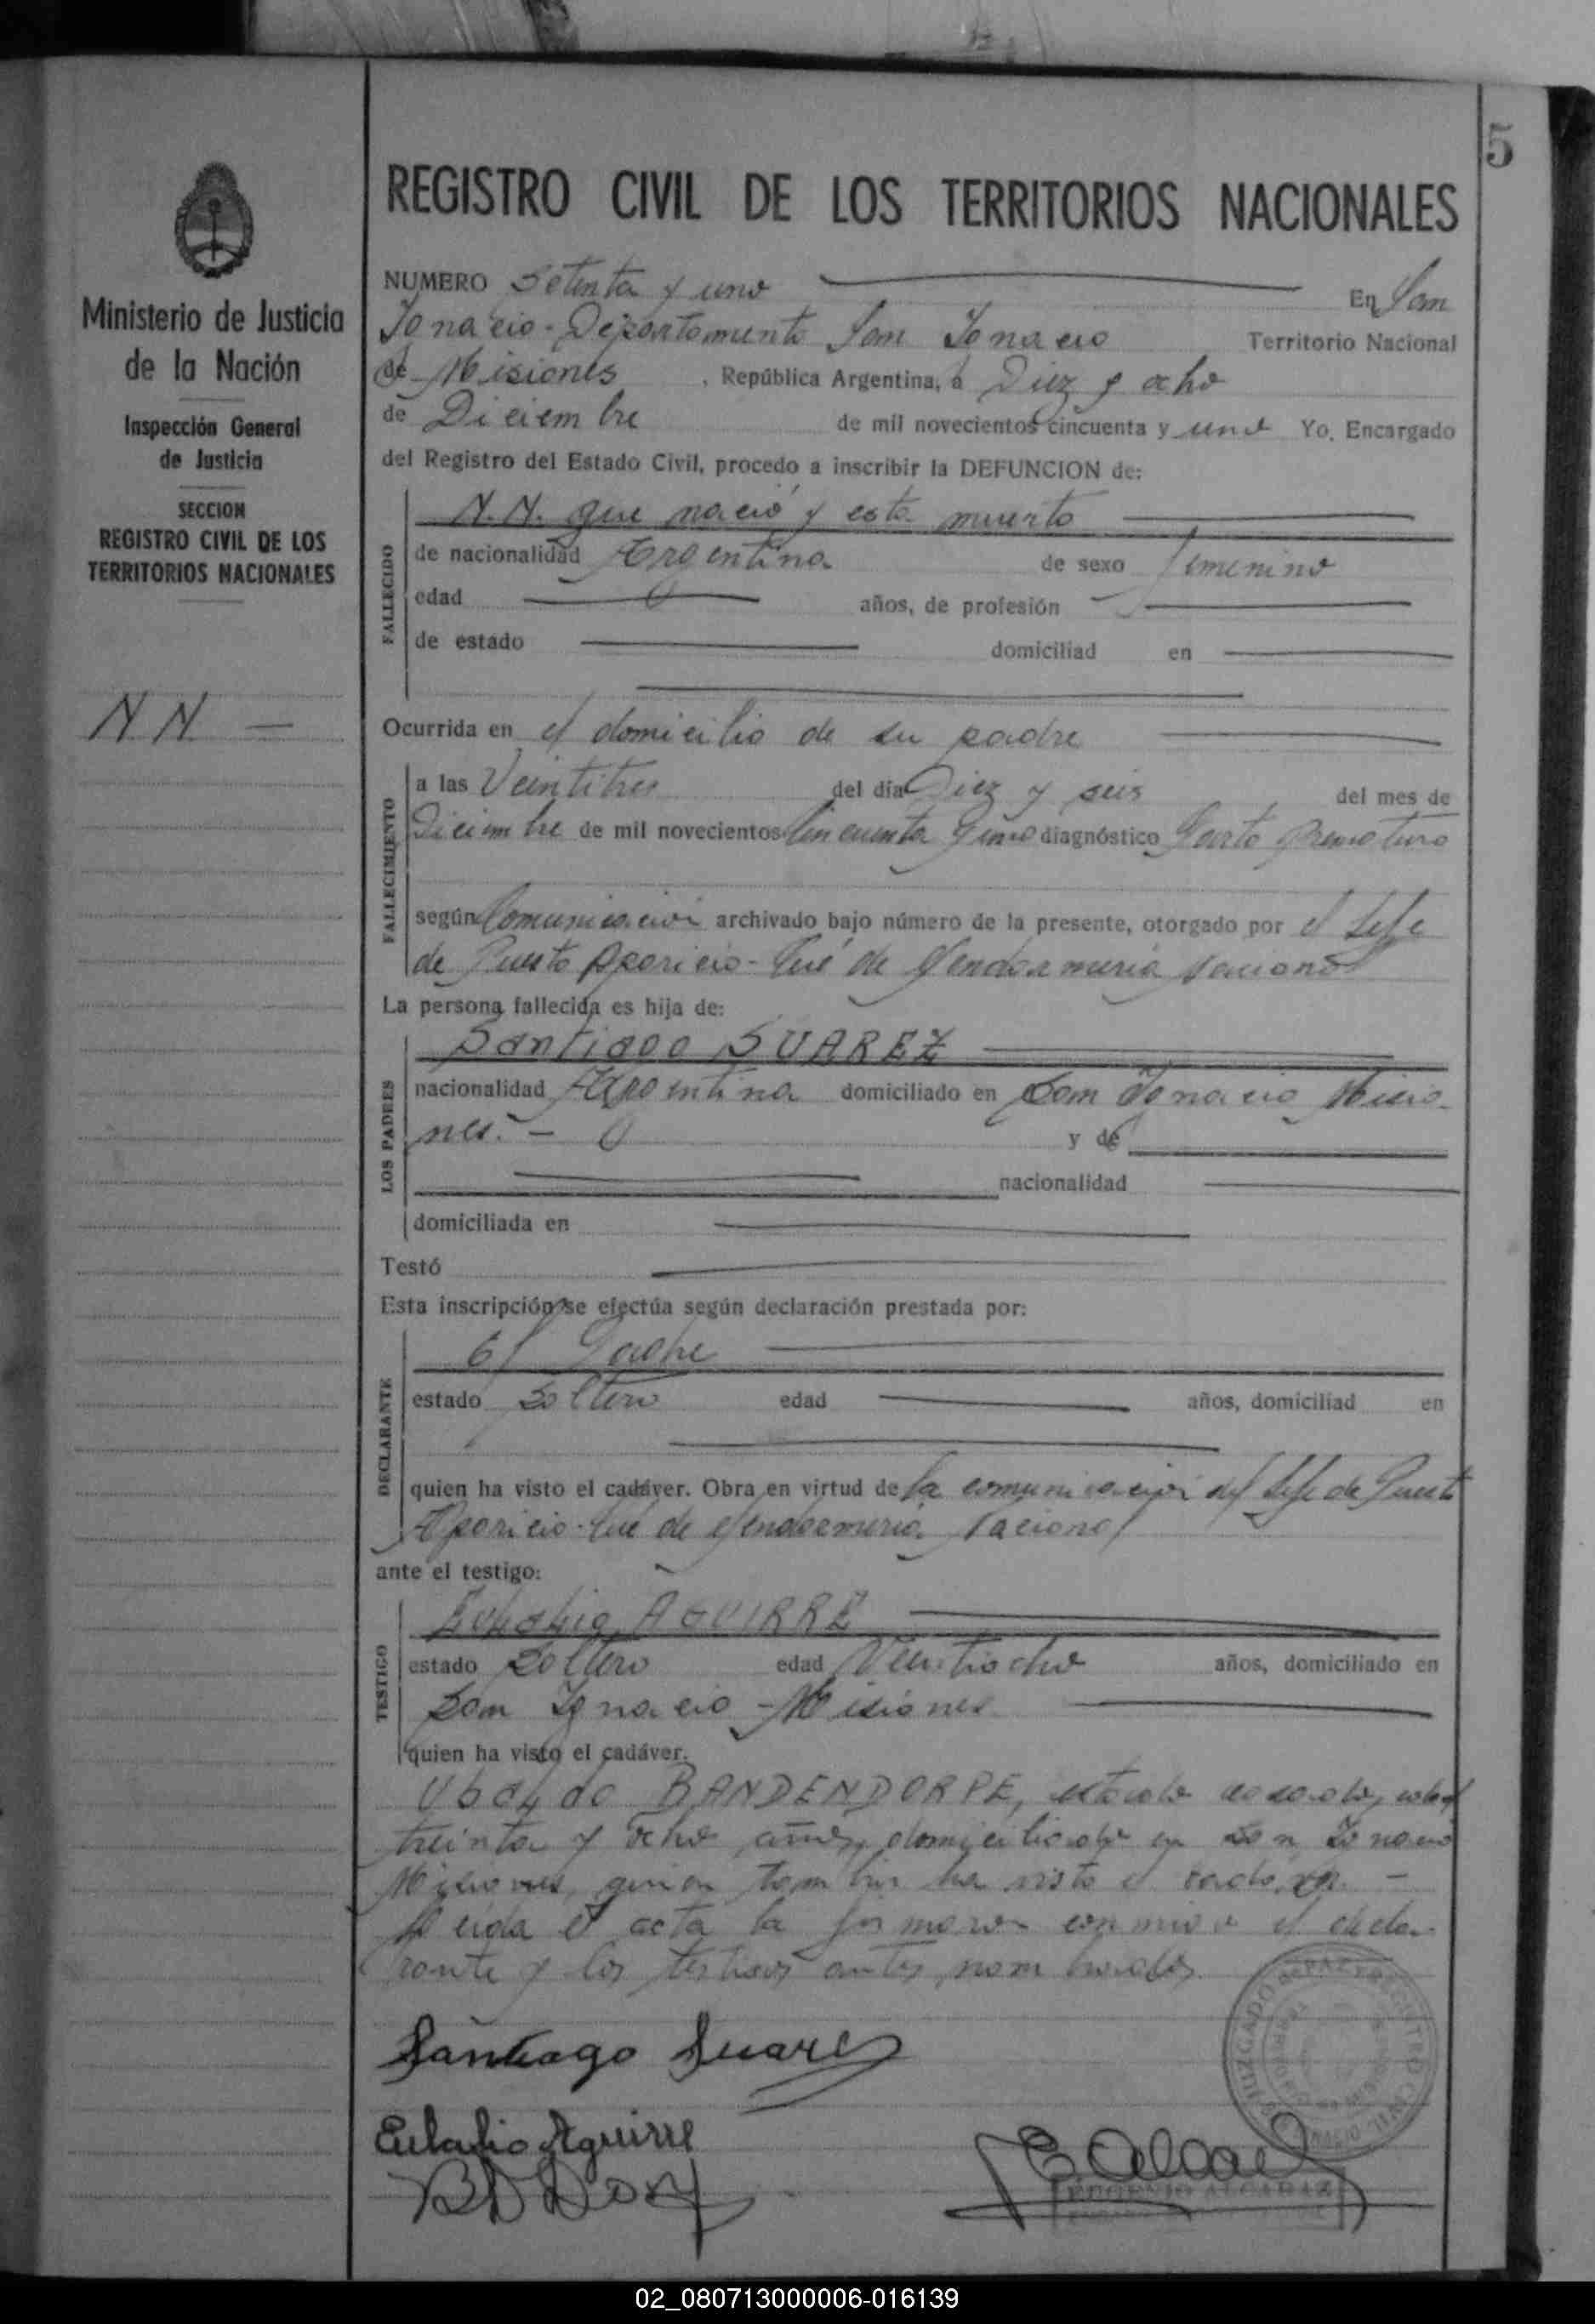 5
REGISTRO CIVIL DE LOS TERRITORIOS NACIONALES
Ministerio de Justicia
de la Nación
Inspección General
de Justicia
SECCION
REGISTRO CIVIL DE LOS
TERRITORIOS NACIONALES
N.N. —
NUMERO Setenta y uno En San
Ignacio - Departamento San Ignacio Territorio Nacional
de Misiones , República Argentina, a Diez y ocho
de Diciembre de mil novecientos cincuenta y uno Yo, Encargado
del Registro del Estado Civil, procedo a inscribir la DEFUNCION de:
FALLECIDO
N.N. que nació y esta muerto
de nacionalidad Argentina de sexo femenino
edad años, de profesión
de estado domiciliad en
Ocurrida en el domicilio de su padre
FALLECIMIENTO
a las Veintitres del día Diez y seis del mes de
Diciembre de mil novecientos Cincuenta y uno diagnóstico Parto Prematuro
según Comunicación archivado bajo número de la presente, otorgado por el Jefe
de Puesto Aparicio - Cué de Gendarmeria Nacional
La persona fallecida es hija de:
LOS PADRES
Santiago SUAREZ
nacionalidad Argentina domiciliado en San Ignacio Misio-
nes. - y de
nacionalidad
domiciliada en
Testó
Esta inscripción se efectúa según declaración prestada por:
DECLARANTE
El Padre
estado Soltero edad años, domiciliad en
quien ha visto el cadáver. Obra en virtud de la comunicación del Jefe de Puesto
Aparicio - Cué de Gendarmeria Nacional
ante el testigo:
TESTIGO
Eulalio AGUIRRE
estado Soltero edad Veintiocho años, domiciliado en
San Ignacio - Misiones
quien ha visto el cadáver.
Ubaldo BANDENDORPE, estado casado, edad
treinta y ocho años, domiciliado en San Ignacio
Misiones, quien tambien ha visto el cadaver. -
Leida el acta la firmaron conmigo el decla-
rante y los testigos antes nombrados.
Santiago Suarez
Eulalio Aguirre
JUZGADO DE PAZ Y REGISTRO CIVIL
EUGENIO ALCARAZ
02_080713000006-016139